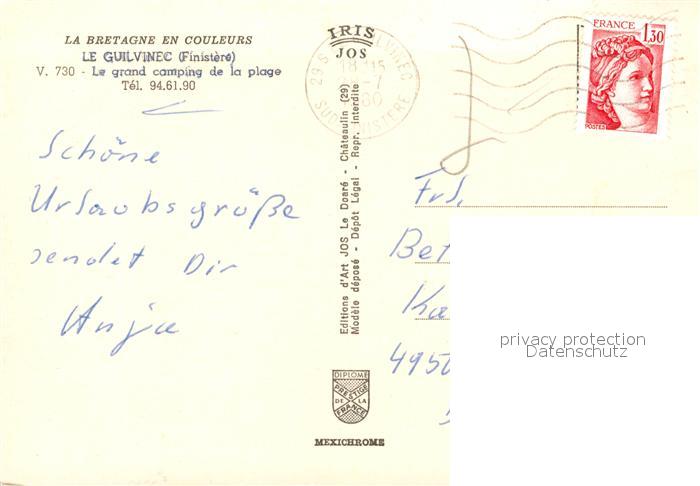 LA BRETAGNE EN COULEURS
LE GUILVINEC (Finistère)
V. 730 - Le grand camping de la plage
Tél. 94.61.90
Schöne
Urlaubsgrüße
sendet Dir
Anja
IRIS
JOS
18-7
SUD FINISTERE
Editions d'Art JOS Le Doaré - Châteaulin (29)
Modèle déposé - Dépôt Légal - Repr. interdite
DIPLOME
PRESTIGE
DE LA
FRANCE
MEXICHROME
FRANCE
1,30
POSTES
Frl.
Bet
Ka
4950
privacy protection
Datenschutz